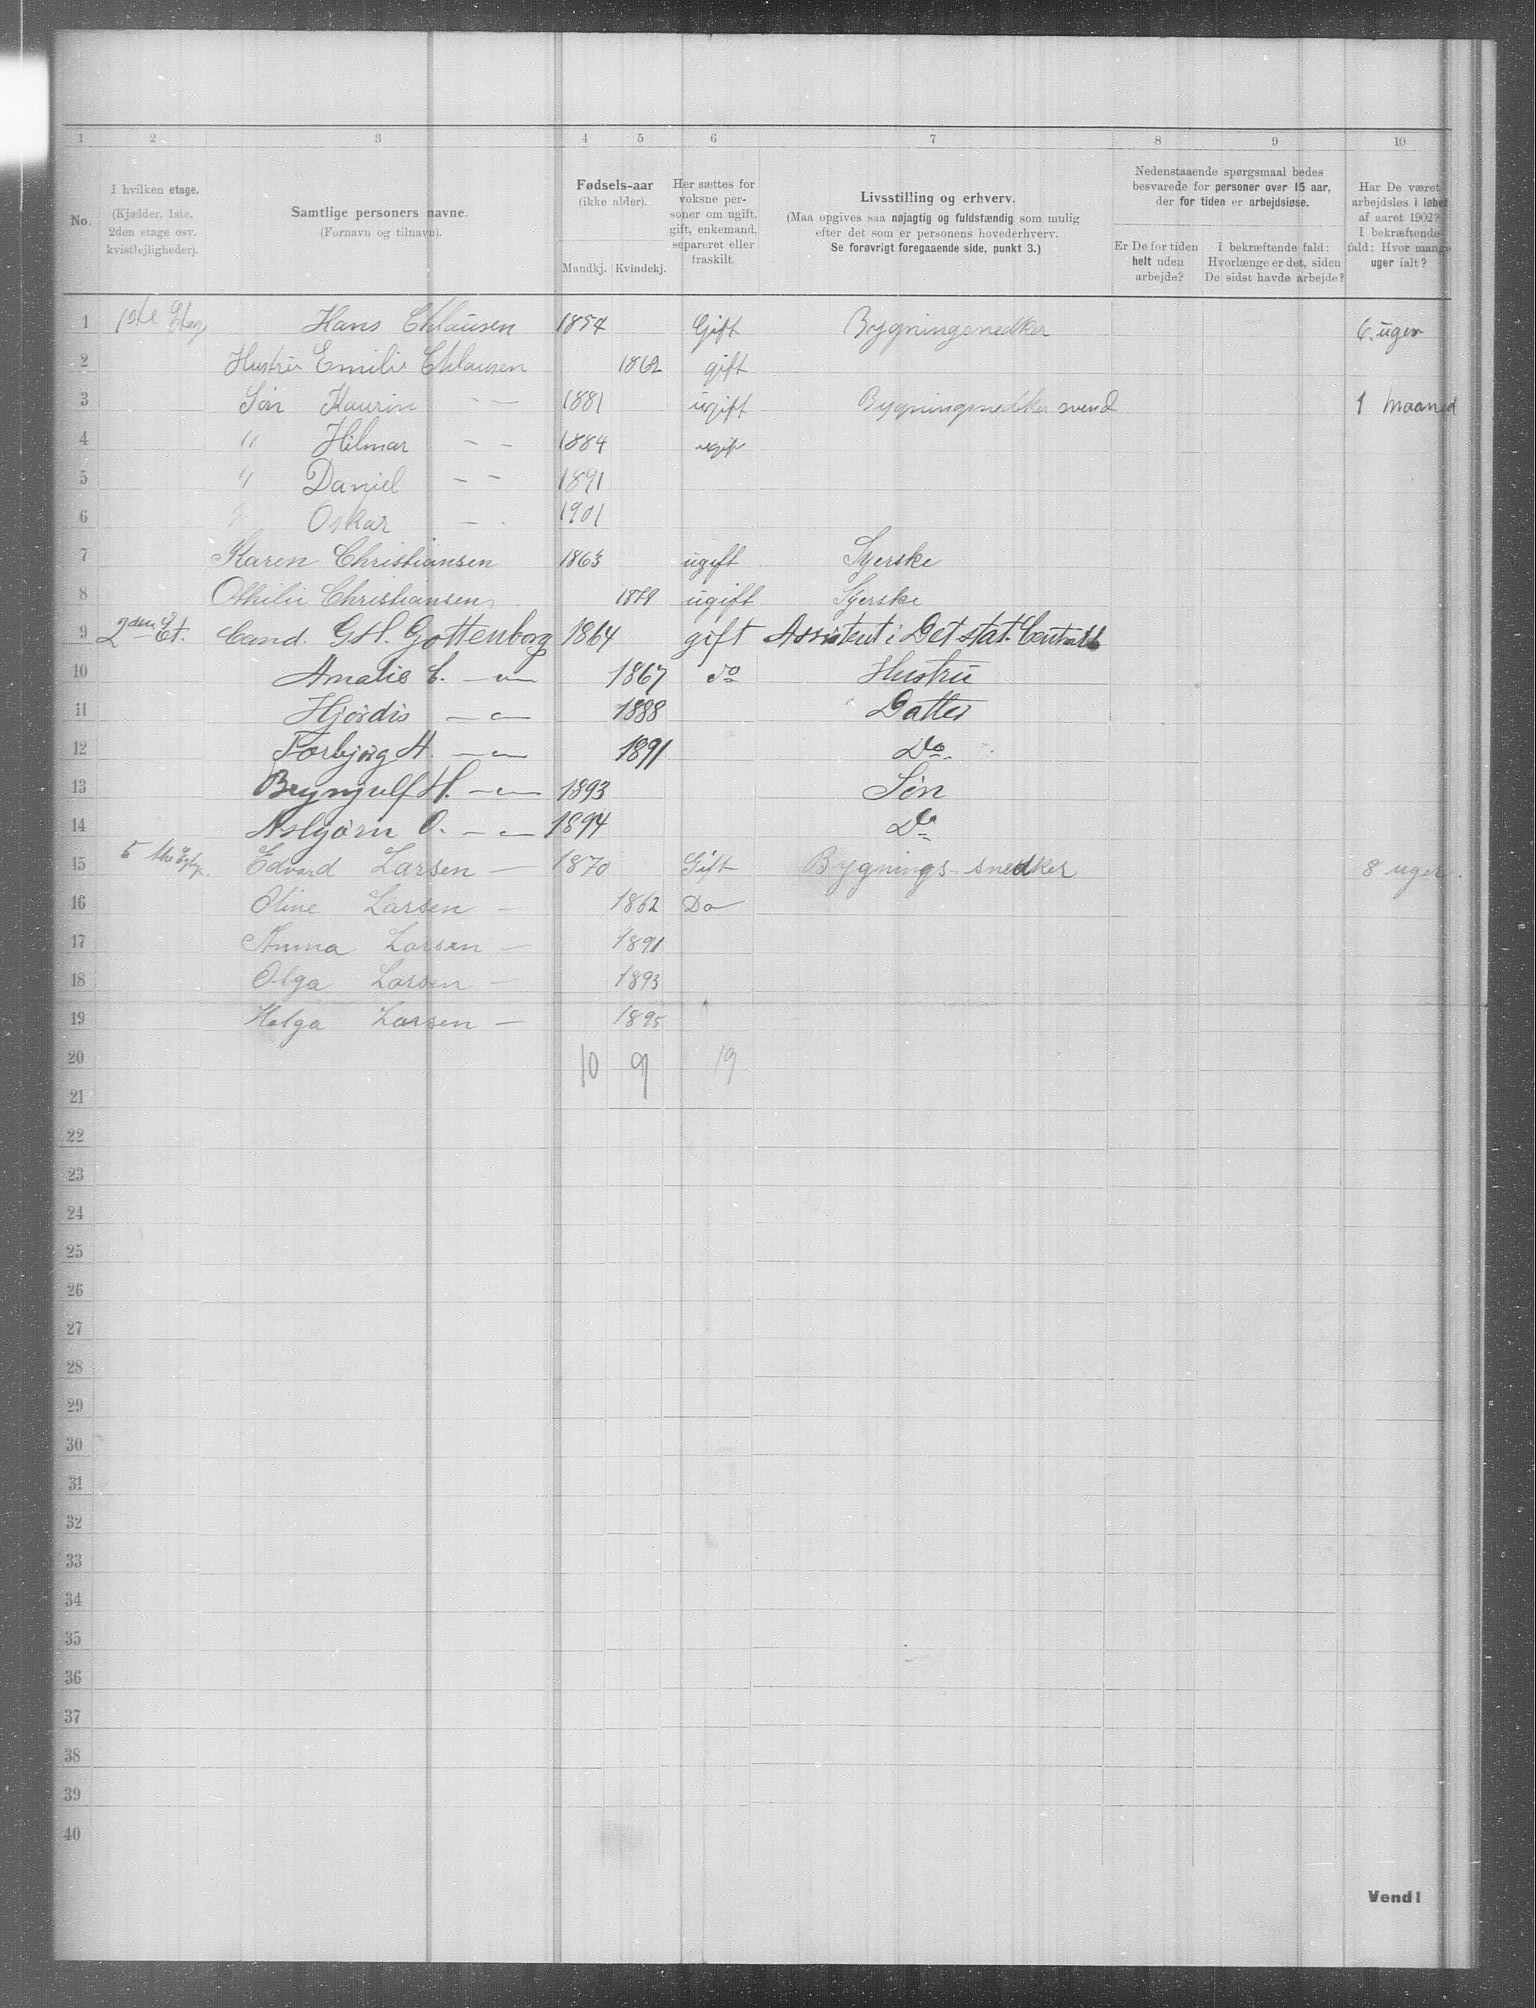 1 2 3 4 5 6 7 8 9 10
No.
I hvilken etage.
(Kjælder, 1ste,
2den etage osv.
kvistlejligheder).
Samtlige personers navne.
(Fornavn og tilnavn).
Fødsels-aar
(ikke alder).
Mandkj. Kvindekj.
Her sættes for
voksne per-
soner om ugift,
gift, enkemand,
separeret eller
fraskilt.
Livsstilling og erhverv.
(Maa opgives saa nøjagtig og fuldstændig som mulig
efter det som er personens hovederhverv.
Se forøvrigt foregaaende side, punkt 3.)
Nedenstaaende spørgsmaal bedes
besvarede for personer over 15 aar,
der for tiden er arbejdsløse.
Er De for tiden
helt uden
arbejde?
I bekræftende fald:
Hvorlænge er det, siden
De sidst havde arbejde?
Har De været
arbejdsløs i løbet
af aaret 1902?
I bekræftende
fald: Hvor mange
uger ialt?
1 1ste Etage Hans Chlausen 1854 Gift Bygningsnedker 6. uger
2 Hustru Emilie Chlausen 1862 gift
3 Søn Kaurin - - 1881 ugift Bygningsnedker svend 1 Maaned
4 " Hilmar - - 1884 ugift
5 " Daniel - - 1891
6 " Oskar - - 1901
7 Karen Christiansen 1863 ugift Syerske
8 Othilie Christiansen 1879 ugift Syerske
9 2den Et. Cand. G.H. Gottenborg 1864 gift Assistent i Det stat. Central
10 Amalie C. — " — 1867 do Hustru
11 Hjørdis — " — 1888 Datter
12 Torbjørg A. — " — 1891 Do.
13 Brynjulf H. — " — 1893 Søn
14 Asbjørn O. — " — 1894 Do
15 Edvard Larsen — 1870 Gift Bygnings-snedker 8 uger.
16 Oline Larsen — 1862 Do
17 Anna Larsen — 1891
18 Olga Larsen — 1893
19 Helga Larsen — 1895
20 10 9 19
21
22
23
24
25
26
27
28
29
30
31
32
33
34
35
36
37
38
39
40
Vend!